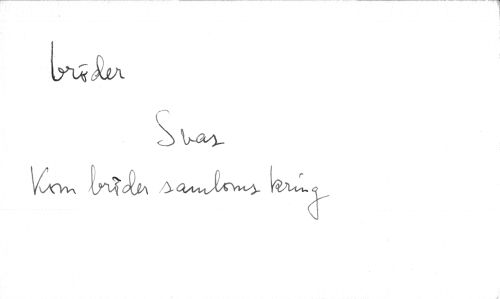 bröder
Svas
Kom bröder samloms kring